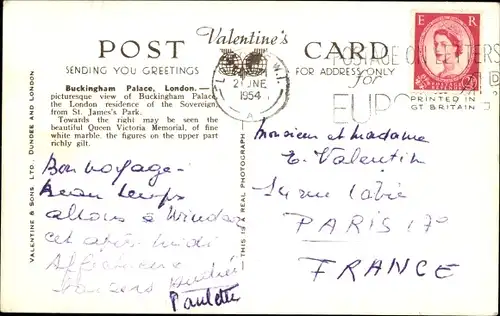 POST Valentine's CARD
SENDING YOU GREETINGS
FOR ADDRESS ONLY
Buckingham Palace, London.—
picturesque view of Buckingham Palace,
the London residence of the Sovereign,
from St. James's Park.
Towards the right may be seen the
beautiful Queen Victoria Memorial, of fine
white marble, the figures on the upper part
richly gilt.
VALENTINE & SONS LTD., DUNDEE AND LONDON
THIS IS A REAL PHOTOGRAPH
JNE
1954
A
E R
POSTAGE ON LETTERS
for
EUR
PRINTED IN
GT BRITAIN
Bon voyage -
Beau temps
allons à Windsor
cet après midi
Paulette
Monsieur et madame
E. Valentin
PARIS 17e
FRANCE